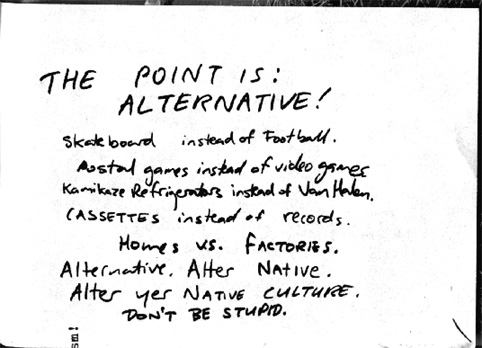 THE POINT IS:
ALTERNATIVE!
Skateboard instead of Football.
Postal games instead of video games
Kamikaze Refrigerators instead of Van Halen.
CASSETTES instead of records.
Homes vs. FACTORIES.
Alternative. Alter NATIVE.
Alter yer NATIVE CULTURE.
DON'T BE STUPID.
sm!